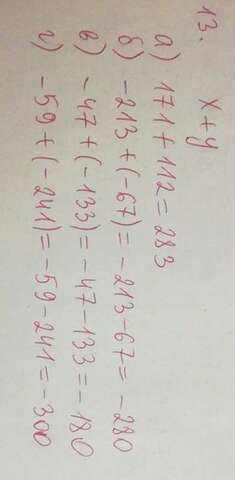 13. x+y
а) 171+112=283
б) -213+(-67)=-213-67=-280
в) -47+(-133)=-47-133=-180
г) -59+(-241)=-59-241=-300